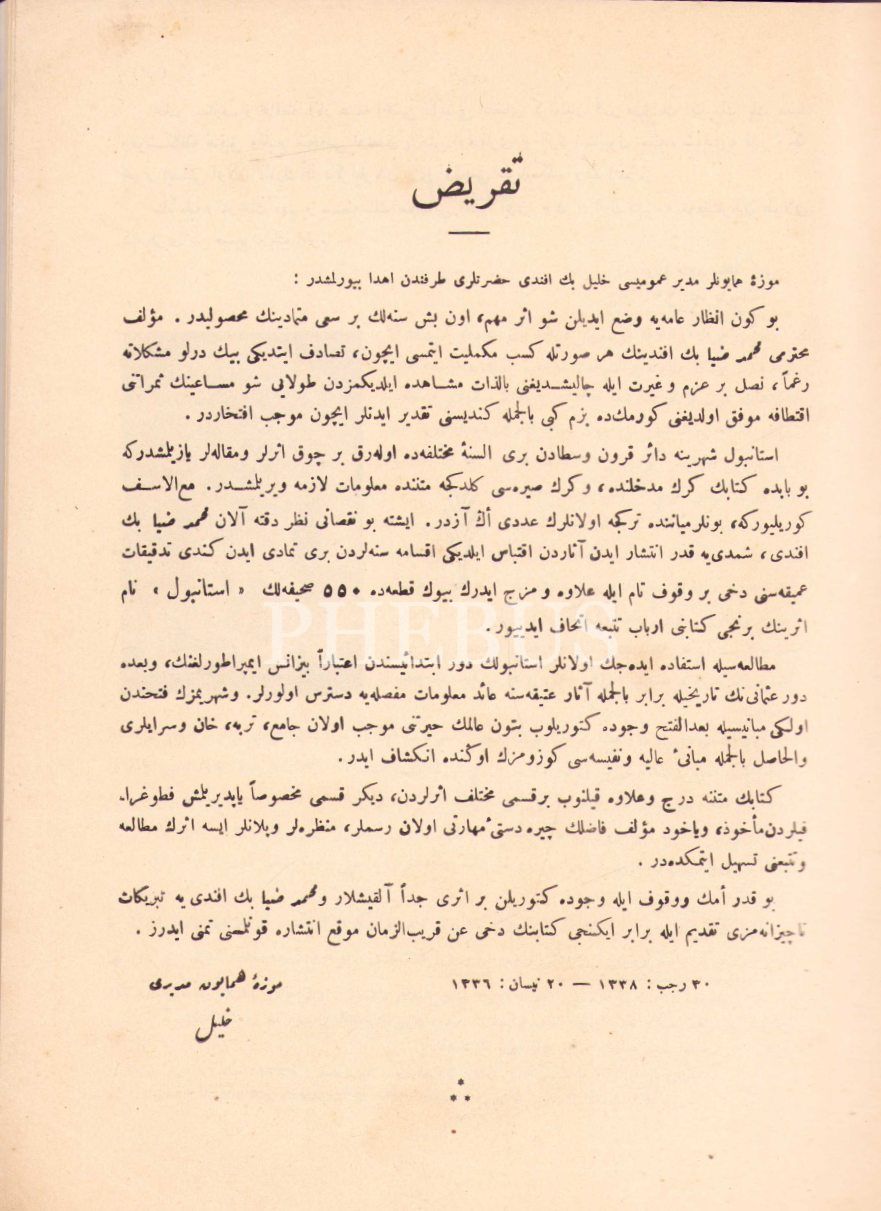 تقريض
موزهٔ همايونلر مدير عموميسى خليل بك افندى حضرتلرى طرفندن اهدا بيورلمشدر :
بو كون انظار عامه‌يه وضع ايديلن شو اثر مهم، اون بش سنه‌لك بر سعى متمادينك محصوليدر . مؤلف
محترمى محمد ضيا بك افندينك هر صورتله كسب مكمليت ايتمسى ايچون، تصادف ايتديكى بيك درلو مشكلاته
رغماً، نصل بر عزم و غيرت ايله چاليشديغنى بالذات مشاهده ايلديكمزدن طولايى شو مساعينك ثمراتنى
اقتطافه موفق اولديغنى كورمك‌ده بزم كبى بالجمله كنديسنى تقدير ايدنلر ايچون موجب افتخاردر .
استانبول شهرينه دائر قرون وسطادن برى السنهٔ مختلفه‌ده اوله‌رق بر چوق اثرلر ومقاله‌لر يازيلمشدركه
بو بابده كتابك كرك مدخلنده، وكرك صيره‌سى كلدكجه متننده معلومات لازمه ويريلمشدر. مع‌الاسف
كوريليوركه، بونلرمياننده تركجه اولانلرك عددى اڭ آزدر. ايشته بو نقصانى نظر دقته آلان محمد ضيا بك
افندى، شمدى‌يه قدر انتشار ايدن آثاردن اقتباس ايلديكى اقسامه سنه‌لردن برى تمادى ايدن كندى تدقيقات
عميقه‌سنى دخى بر وقوف تام ايله علاوه و مزج ايدرك بيوك قطعه‌ده ٥٥٠ صحيفه‌لك « استانبول » نام
اثرينك برنجى كتابنى ارباب تتبعه اتحاف ايدييور .
مطالعه‌سيله استفاده ايده‌جك اولانلر استانبولك دور ابتدائيسندن اعتباراً بيزانس ايمپراطورلغنك، وبعده
دور عثمانى‌نك تاريخيله برابر بالجمله آثار عتيقه‌سنه عائد معلومات مفصله‌يه دسترس اولورلر. وشهريمزك فتحندن
اولكى مبانيسيله بعدالفتح وجوده كتوريلوب بتون عالمك حيرتنى موجب اولان جامع، تربه، خان وسرايلرى
والحاصل بالجمله مبانىٔ عاليه ونفيسه‌سى كوزومزك اوڭنده انكشاف ايدر.
كتابك متننه درج وعلاوه قيلنوب برقسمى مختلف اثرلردن، ديكر قسمى مخصوصاً ياپديريلمش فطوغرا-
فيلردن مأخوذ، وياخود مؤلف فاضلك چيره دستىٔ مهارتى اولان رسملر، منظره‌لر وپلانلر ايسه اثرك مطالعه
وتتبعنى تسهيل ايتمكده‌در .
بو قدر أمك ووقوف ايله وجوده كتوريلن بر اثرى جداً آلقيشلار ومحمد ضيا بك افندى يه تبريكات
ناچيزانه‌مزى تقديم ايله برابر ايكنجى كتابنك دخى عن قريب‌الزمان موقع انتشاره قونلمسنى تمنى ايدرز .
٣٠ رجب: ١٣٣٨ — ٢٠ نيسان: ١٣٣٦
موزهٔ همايون مديرى
خليل
PHEBUS